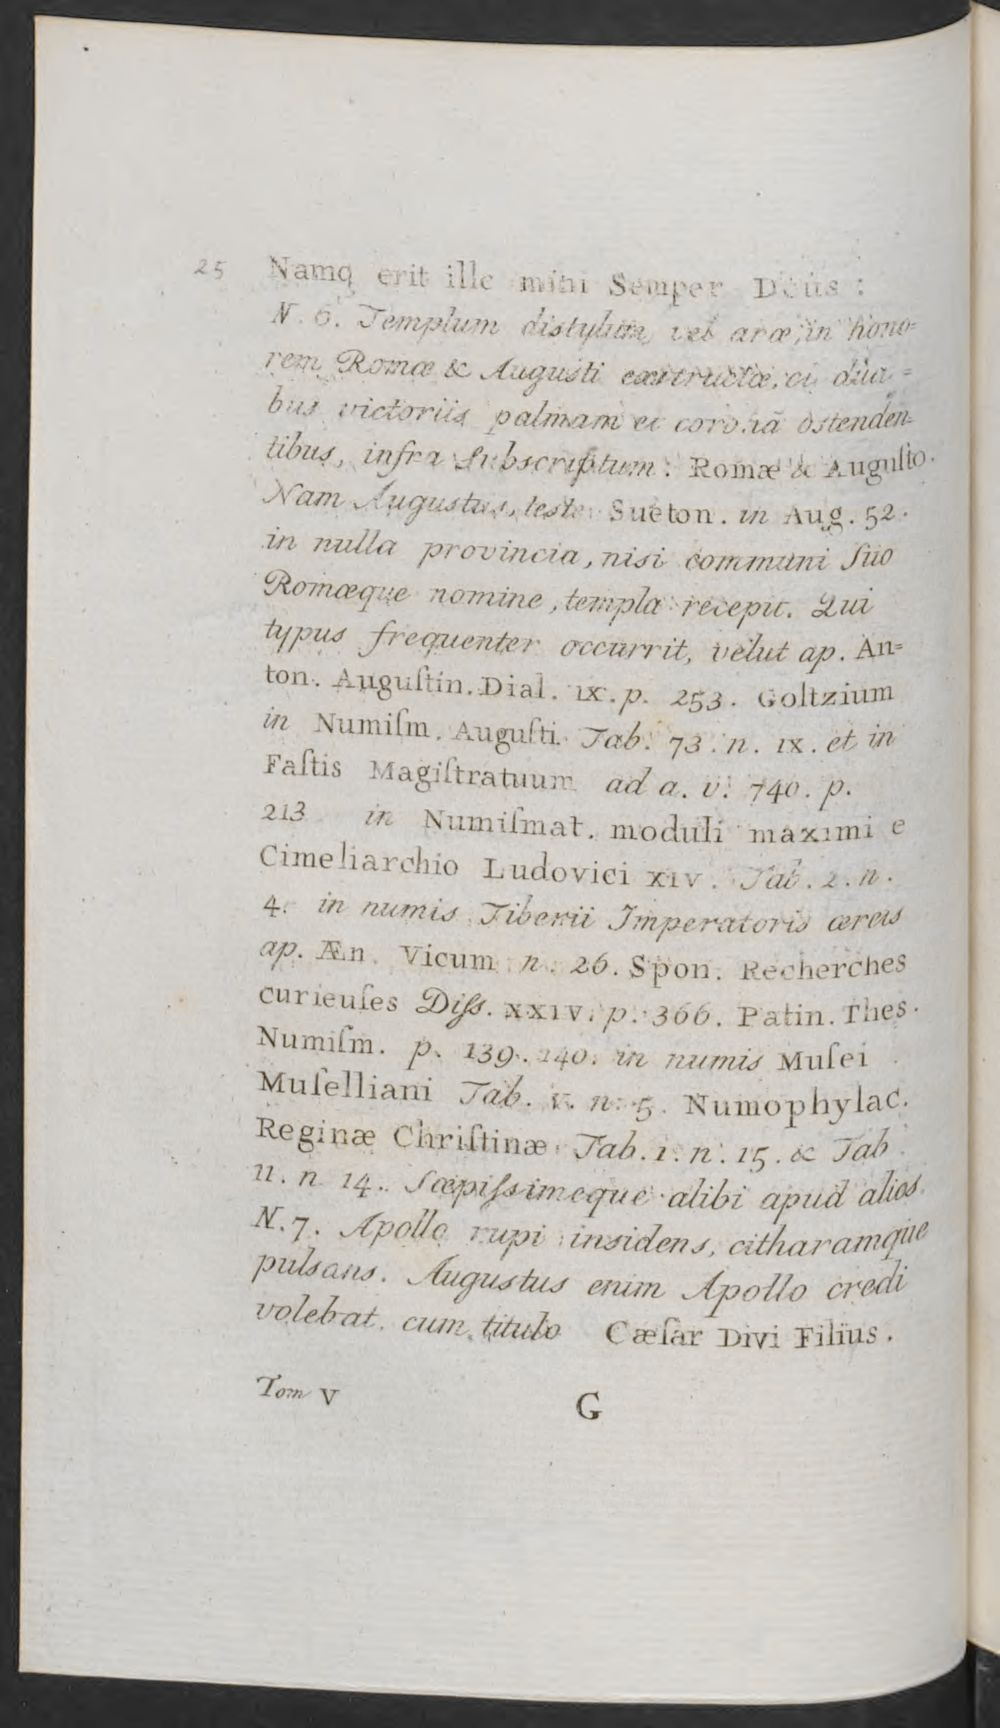 25 Namq erit ille mihi Semper Deus :
N. 6. Templum distylum, vel aræ, in hono=
rem Romæ & Augusti exstructæ, cū dua=
bus victoriis palmam et coronā ostenden=
tibus, infra ſubscriptum : Romæ & Auguſto.
Nam Augustus, teste Sueton. in Aug. 52.
in nulla provincia, nisi communi ſuo
Romæque nomine, templa recepit. Qui
typus frequenter occurrit, velut ap. An=
ton. Auguſtin. Dial. IX. p. 253. Goltzium
in Numiſm. Auguſti. Tab. 73. n. IX. et in
Faſtis Magiſtratuum ad a. v. 740. p.
213 in Numiſmat. moduli maximi e
Cimeliarchio Ludovici XIV. Tab. 2. n.
4. in numis Tiberii Imperatoris æreis
ap. Æn. Vicum n. 26. Spon. Recherches
curieuſes Diſs. XXIV. p. 366. Patin. Thes.
Numiſm. p. 139. 140. in numis Muſei
Muſelliani Tab. V. n. 5. Numophylac.
Reginæ Chriſtinæ Tab. 1. n. 15. & Tab.
11. n 14. Sæpiſsimeque alibi apud alios.
N. 7. Apollo rupi insidens, citharamque
pulsans. Augustus enim Apollo credi
volebat. cum titulo Cæſar Divi Filius.
Tom V G